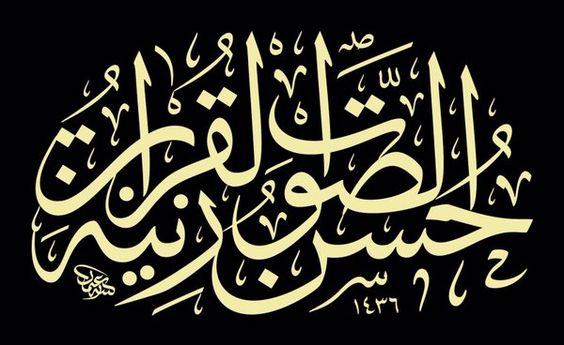 حسن الصوت زينة القرآن
١٤٣٦